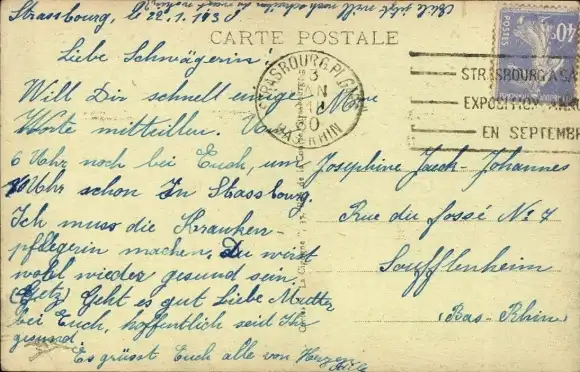 Strassburg, le 22.1.193
CARTE POSTALE
Liebe Schwägerin!
Will Dir schnell einige
Worte mitteillen.
6 Uhr noch bei Euch, um
10 Uhr schon In Stassburg.
Ich muss die Kranken-
pflegerin machen. Du wirst
wohl wieder gesund sein.
Geht es gut Liebe Mutter
bei Euch, hoffentlich seid Ihr
gesund.
Es grüsst Euch alle von Herzen
STRASBOURG
BAS-RHIN
POSTES
40c
STRASBOURG
EXPOSITION
EN SEPTEMB
Mme
Josephine Jaeck-Johannes
Rue du fossé No 7
Soufflenheim
(Bas-Rhin)